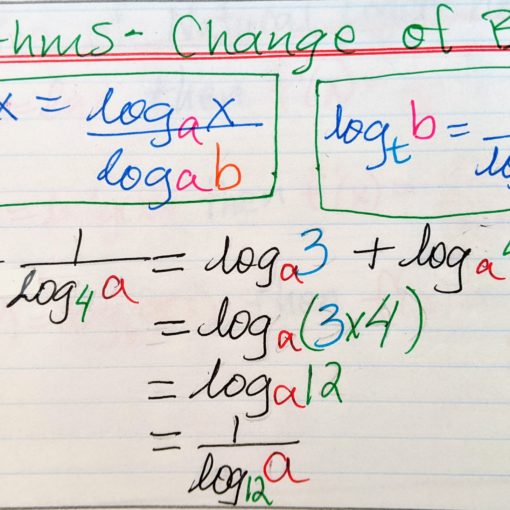 thms - Change of B
x = logₐx / logₐb
logₜb = 
1 / log₄a = logₐ3 + logₐ4
= logₐ(3x4)
= logₐ12
= 1 / log₁₂a